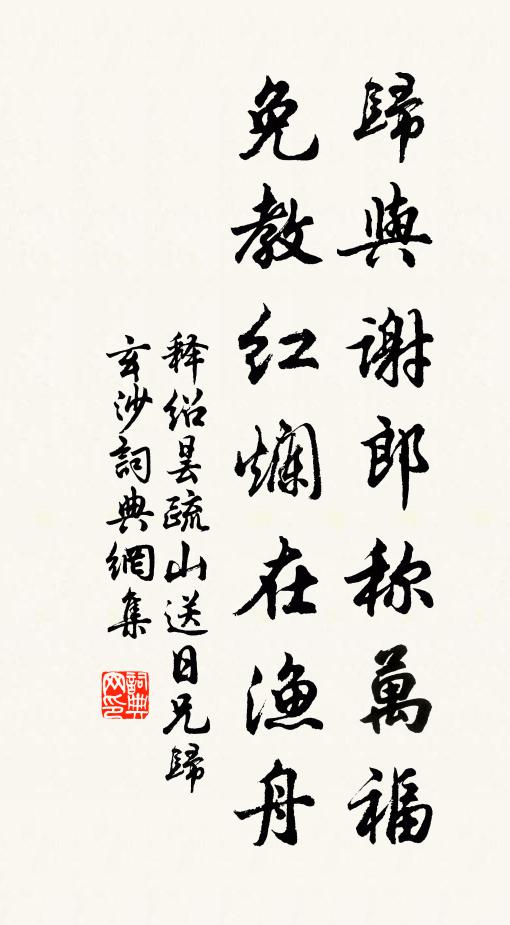 歸與謝郎称萬福
免教紅爛在漁舟
释紹曇疏山送日兄歸
玄沙詞典網集
詞典网印